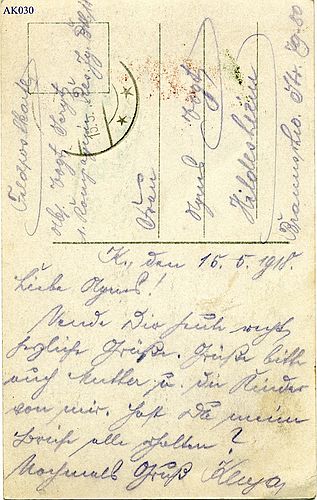 AK030
Feldpostkarte
Frau
Agnes Vogt
Hildesheim
Braunschw. Str. 80
K., den 15.5.1918.
Liebe Agnes!
Sende Dir heute recht
herzliche Grüße. Grüße bitte
auch Mutter u. die Kinder
von mir. Hast Du meine
Briefe alle erhalten?
Nochmals Gruß